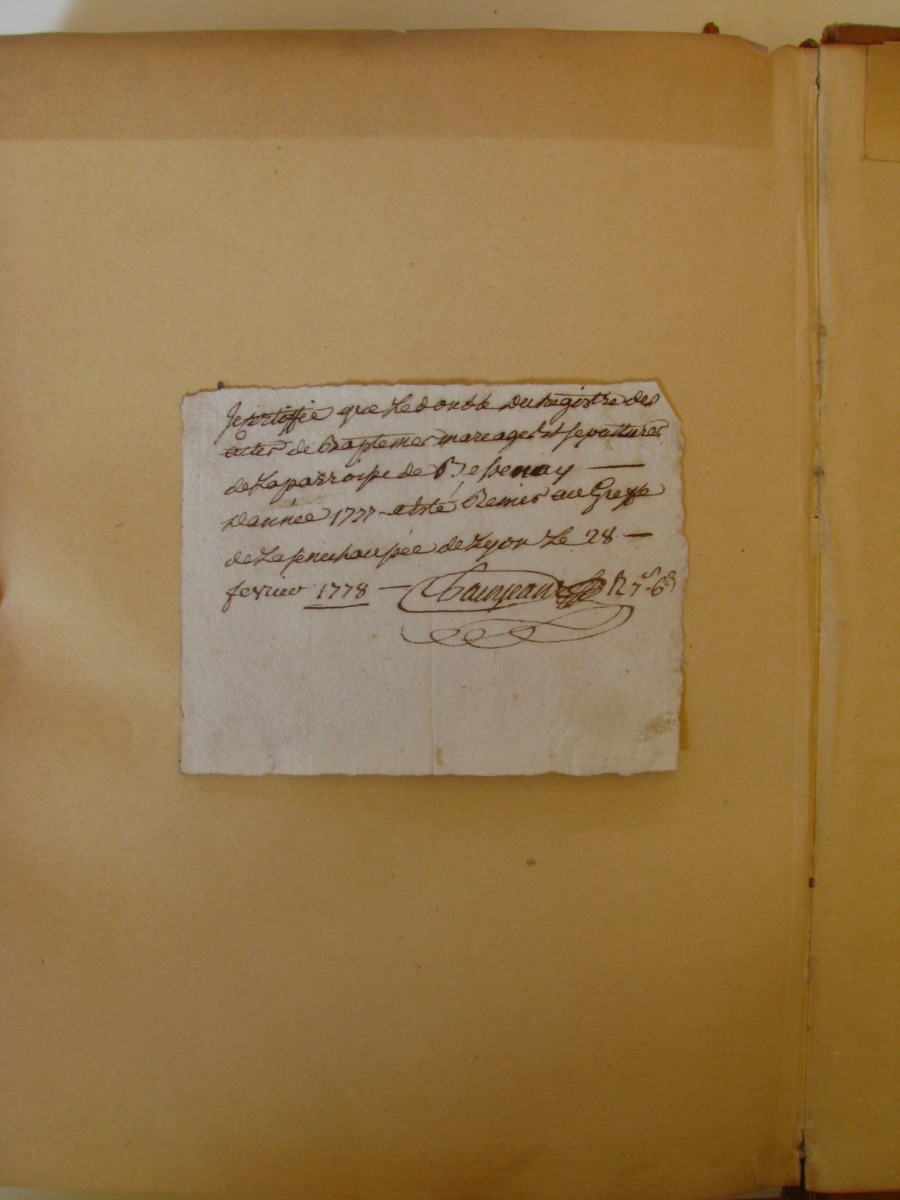 Je certiffie que Le double du Registre des
actes de Baptemes mareages et sepultures
de La parroisse de Bessenay —
Lannée 1777 - a Eté Remis au Greffe
de La senechaussée de Lyon Le 28 —
fevrier 1778 —